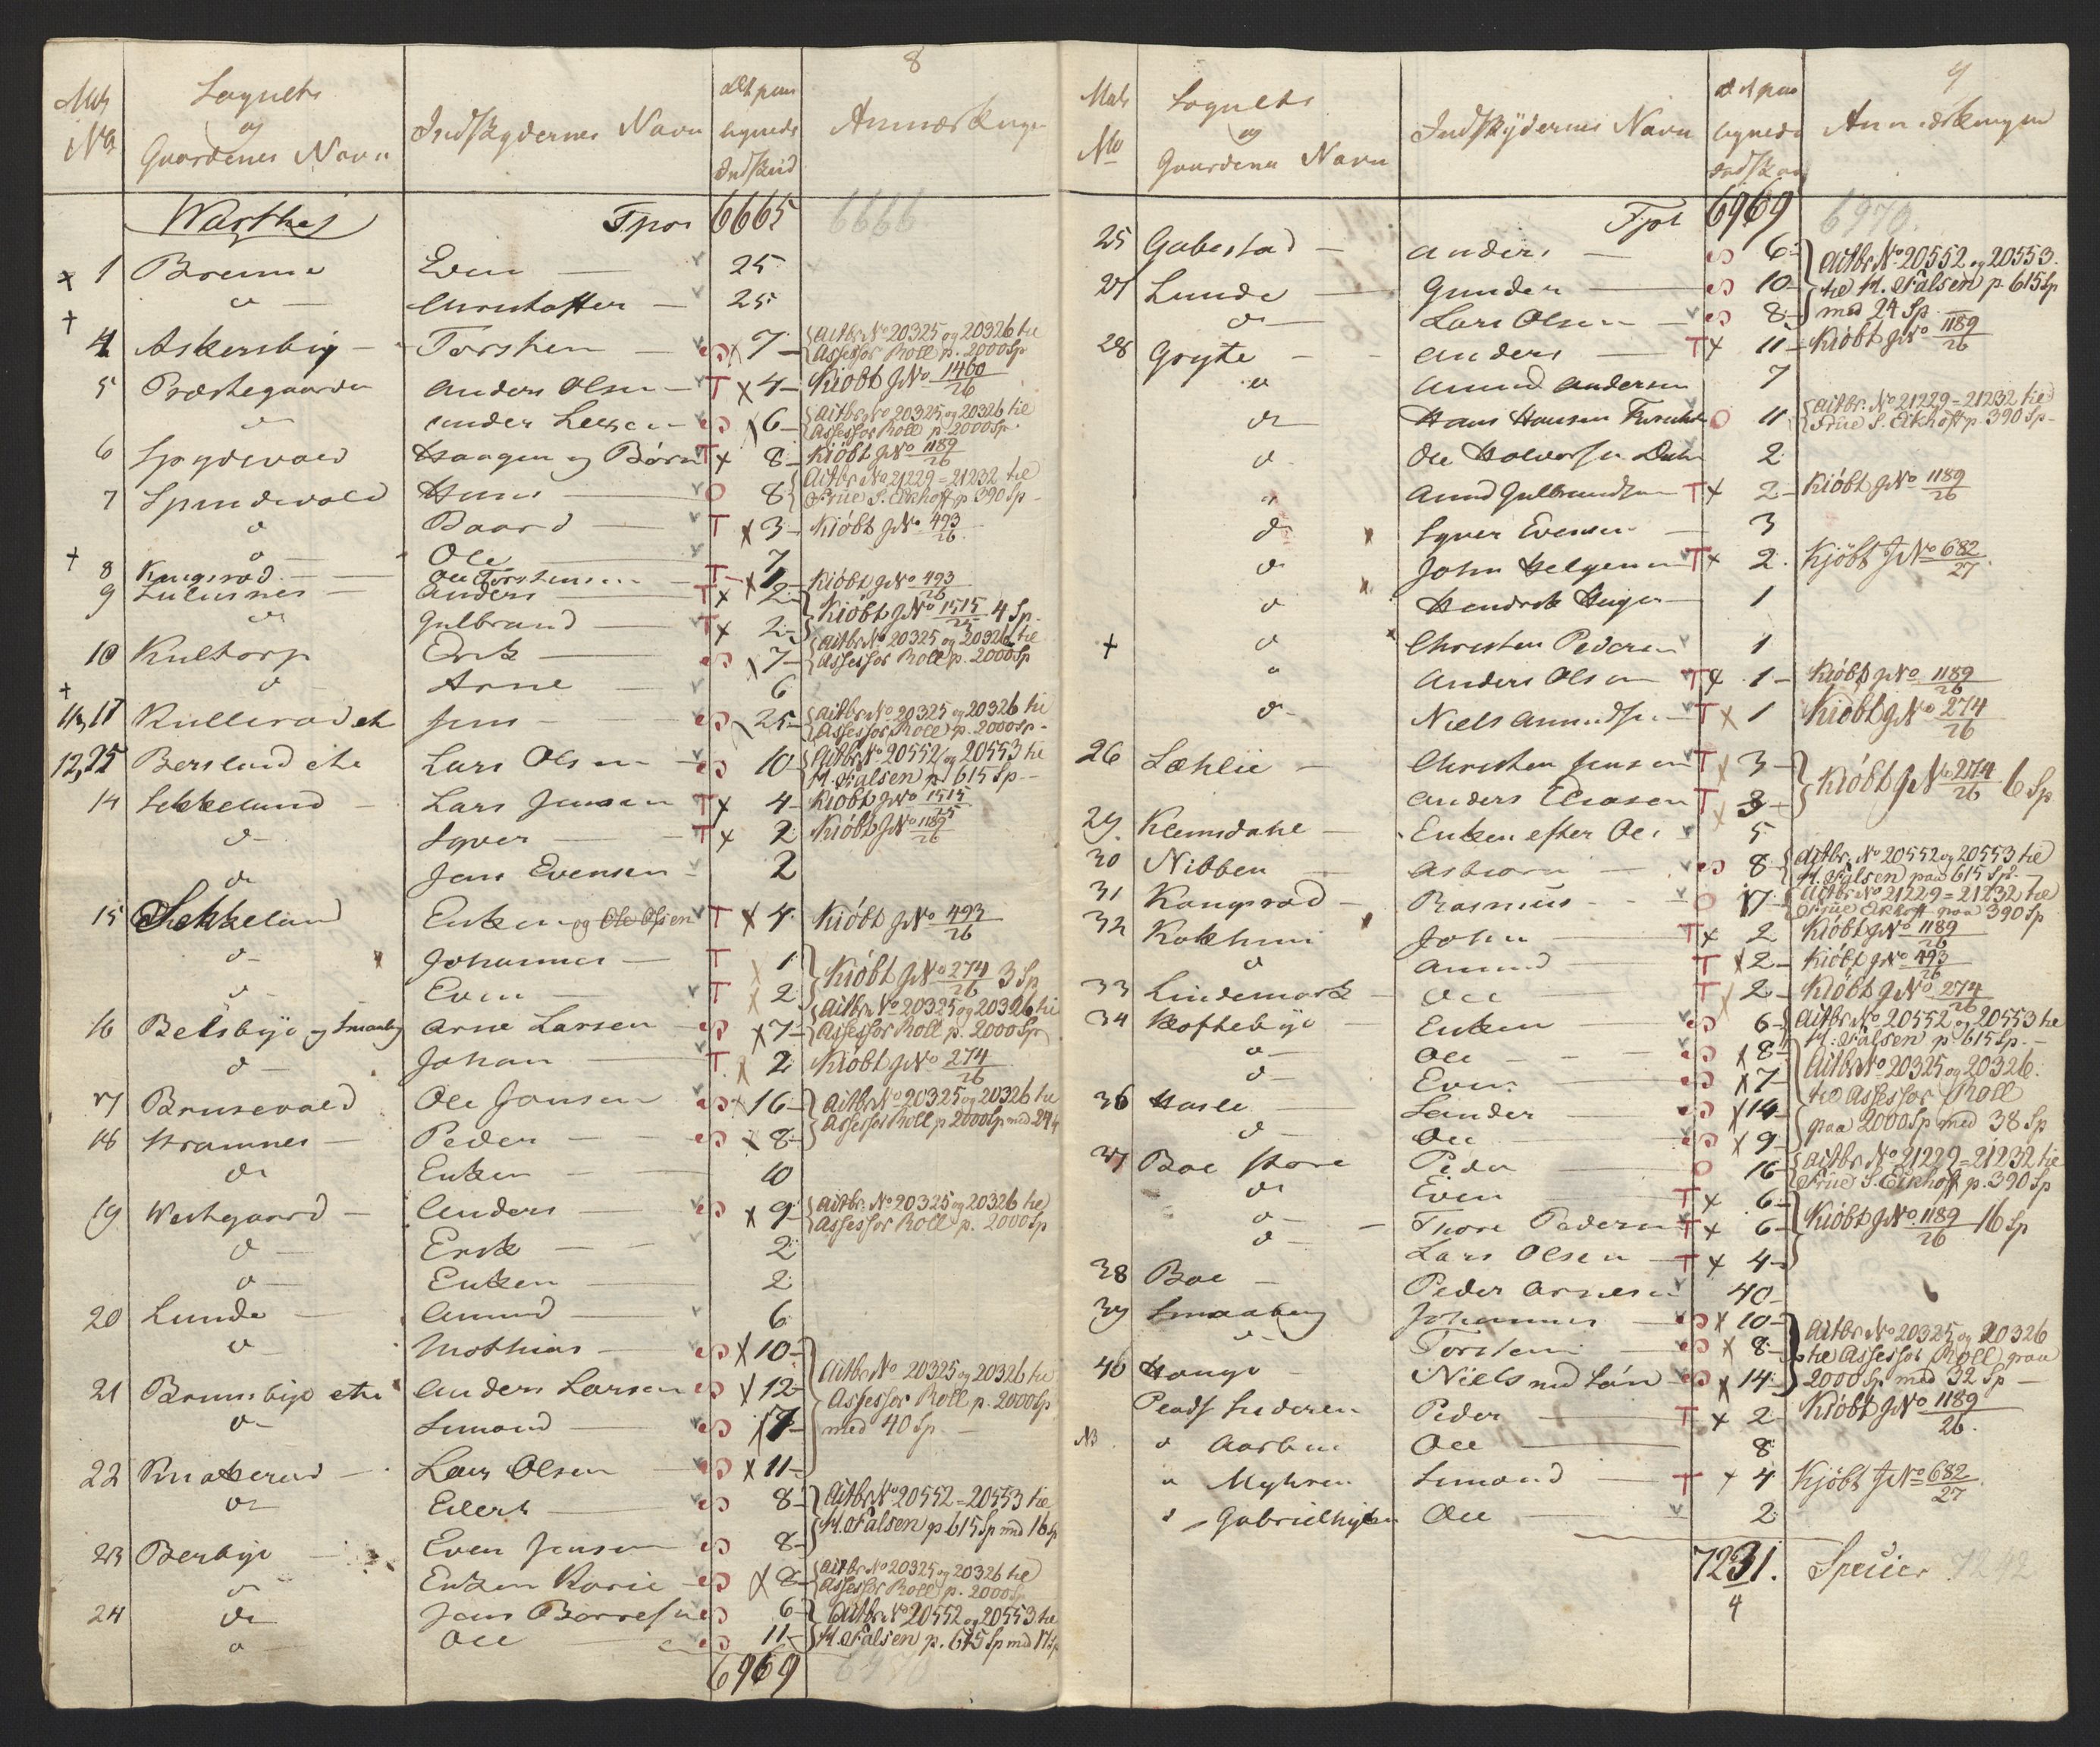 8
Mats No | Sognets og Gaardenes Navn | Indskydernes Navn | Indskud | Anmærkninger
Warthej | Tpor | 6665 | 6666
1 | Brenne | Even | 25
d | Christoffer | 25
4 | Askersbÿ | Torsten | 7 | Aitbr. No 20325 og 20326 til Assessor Roll p. 2000 Sp
5 | Præstegaarden | Anders Olsen | T x 4 | Kiöbt J No 1460/26
d | 6 | Aitbr. No 20325 og 20326 til Assessor Roll p. 2000 Sp
6 | Spydevold | Haagen og Børn | T x 8 | Kiöbt J No 1189/26
7 | Spindvold | Hans | 8 | Aitbr. No 21229 = 21232 til Frue S. Eikhoff p 390 Sp
d | Baard | T x 3 | Kiöbt J No 493/26
d | Ole | 7
8 | Kangsrød | Ole Torstensen | T x 1 | Kiöbt J No 493/26
9 | Anders | T x 2 | Kiöbt J No 1515/25 4 Sp
d | Gulbrand | T x 2
10 | Kultorp | Erik | 7 | Aitbr. No 20325 og 20326 til Assessor Roll p. 2000 Sp
d | Arne | 6
11, 17 | Kullerød etc | Jens | 25 | Aitbr. No 20325 og 20326 til Assessor Roll p. 2000 Sp
12, 25 | Berslund etc | Lars Olsen | 10 | Aitbr. No 20552 og 20553 til H. Falsen p 615 Sp
14 | Sekkelund | Lars Jensen | T x 4 | Kiöbt J No 1515/25
d | Syver | T x 2 | Kiöbt J No 1189/26
d | Jens Evensen | 2
15 | Sekkelund | Enken og Ole Olsen | T x 4 | Kiöbt J No 493/26
d | Johannes | T 1 | Kiöbt J No 274/26 3 Sp
d | Even | T x 2
16 | Belsbye og Smaaby | Arne Larsen | x 7 | Aitbr. No 20325 og 20326 til Assessor Roll p. 2000 Sp
d | Johan | T x 2 | Kiöbt J No 274/26
17 | Brusevold | Ole Jonsen | 16 | Aitbr. No 20325 og 20326 til Assessor Roll p 2000 Sp med 24
18 | Stramnes | Peder | x 8
d | Enken | 10
19 | Westgaard | Anders | x 9 | Aitbr. No 20325 og 20326 til Assessor Roll p. 2000 Sp
d | Erik | 2
d | Enken | 2
20 | Lunde | Amund | 6
d | Mathias | x 10 | Aitbr. No 20325 og 20326 til Assessor Roll p. 2000 Sp med 40 Sp
21 | Brunsbye etc | Anders Larsen | x 12
d | Simond | 7
22 | Knaterud | Lars Olsen | x 11
d | Eilert | 8 | Aitbr. No 20552 = 20553 til H. Falsen p 615 Sp med 16 Sp
23 | Berbye | Even Jensen | 8
d | Enken Karie | x 8 | Aitbr. No 20325 og 20326 til Assessor Roll p. 2000 Sp
24 | d | Jens Borresen | 6 | Aitbr. No 20552 og 20553 til H. Falsen p. 615 Sp med 17 Sp
d | Ole | 11
6969 | 6970
9
Mats No | Sognets og Gaardenes Navn | Indskydernes Navn | Indskud | Anmærkninger
Tpt | 6969 | 6970
25 | Gabestad | Anders | 6 | Aitbr No 20552 og 20553 til H. Falsen p 615 Sp med 24 Sp
27 | Lunde | Gunder | 10
d | Lars Olsen | 8
28 | Gryte | Anders | T x 11 | Kiöbt J No 1189/26
d | Amund Andersen | 7
d | Hans Hansen | 11 | Aitbr. No 21229 = 21232 til Frue S. Eikhoff p. 390 Sp
d | Ole Halvorsen | 2
d | Amund Gulbrandsen | T x 2 | Kiöbt J No 1189/26
d | Syver Evensen | 3
d | Johan Helgesen | T x 2 | Kjöbt J No 682/27
d | Hendrik | 1
d | Christen Pedersen | 1
d | Anders Olsen | T x 1 | Kiöbt J No 1189/26
d | Niels Amundsen | T x 1 | Kiöbt J No 274/26
26 | Læhlie | Christen Jensen | T x 3 | Kiöbt J No 274/26 6 Sp
Anders Eliasen | T x 3
29 | Klemsdahl | Enken efter Ole | 5
30 | Nibben | Asbiørn | 8 | Aitbr. No 20552 og 20553 til H. Falsen paa 615 Sp
31 | Kangsrød | Rasmus | 17 | Aitbr No 21229 = 21232 til Frue Eikhoff paa 390 Sp
32 | Kokhuus | John | T x 2 | Kiöbt J No 1189/26
d | Amund | T x 2 | Kiöbt J No 493/26
33 | Lindemark | Ole | T 2 | Kiöbt J No 274/26
34 | Koftebye | Enken | 6 | Aitbr No 20552 og 20553 til H. Falsen p 615 Sp
d | Ole | x 8 | Aitbr No 20325 og 20326 til Assessor Roll paa 2000 Sp med 38 Sp
d | Even | x 7
36 | Hasle | Sander | x 14
d | Ole | x 9
37 | Boe store | Peder | 16 | Aitbr No 21229 = 21232 til Frue S. Eikhoff p. 390 Sp
d | Even | T x 6 | Kiöbt J No 1189/26 16 Sp
d | Thore Pedersen | T x 6
d | Lars Olsen | T x 4
38 | Boe | Peder Arnesen | 40
39 | Smaaberg | Johannes | x 10 | Aitbr No 20325 og 20326 til Assessor Roll paa 2000 Sp med 32 Sp
d | Torsten | x 8
40 | Hauge | Niels med Søn | x 14
Peder | T x 2 | Kiöbt J No 1189/26
NB | d | Ole | 8
d Myhren | Simond | T x 4 | Kjöbt J No 682/27
d Gabrielhytten | Ole | 2
7231. | Specier | 7242
4